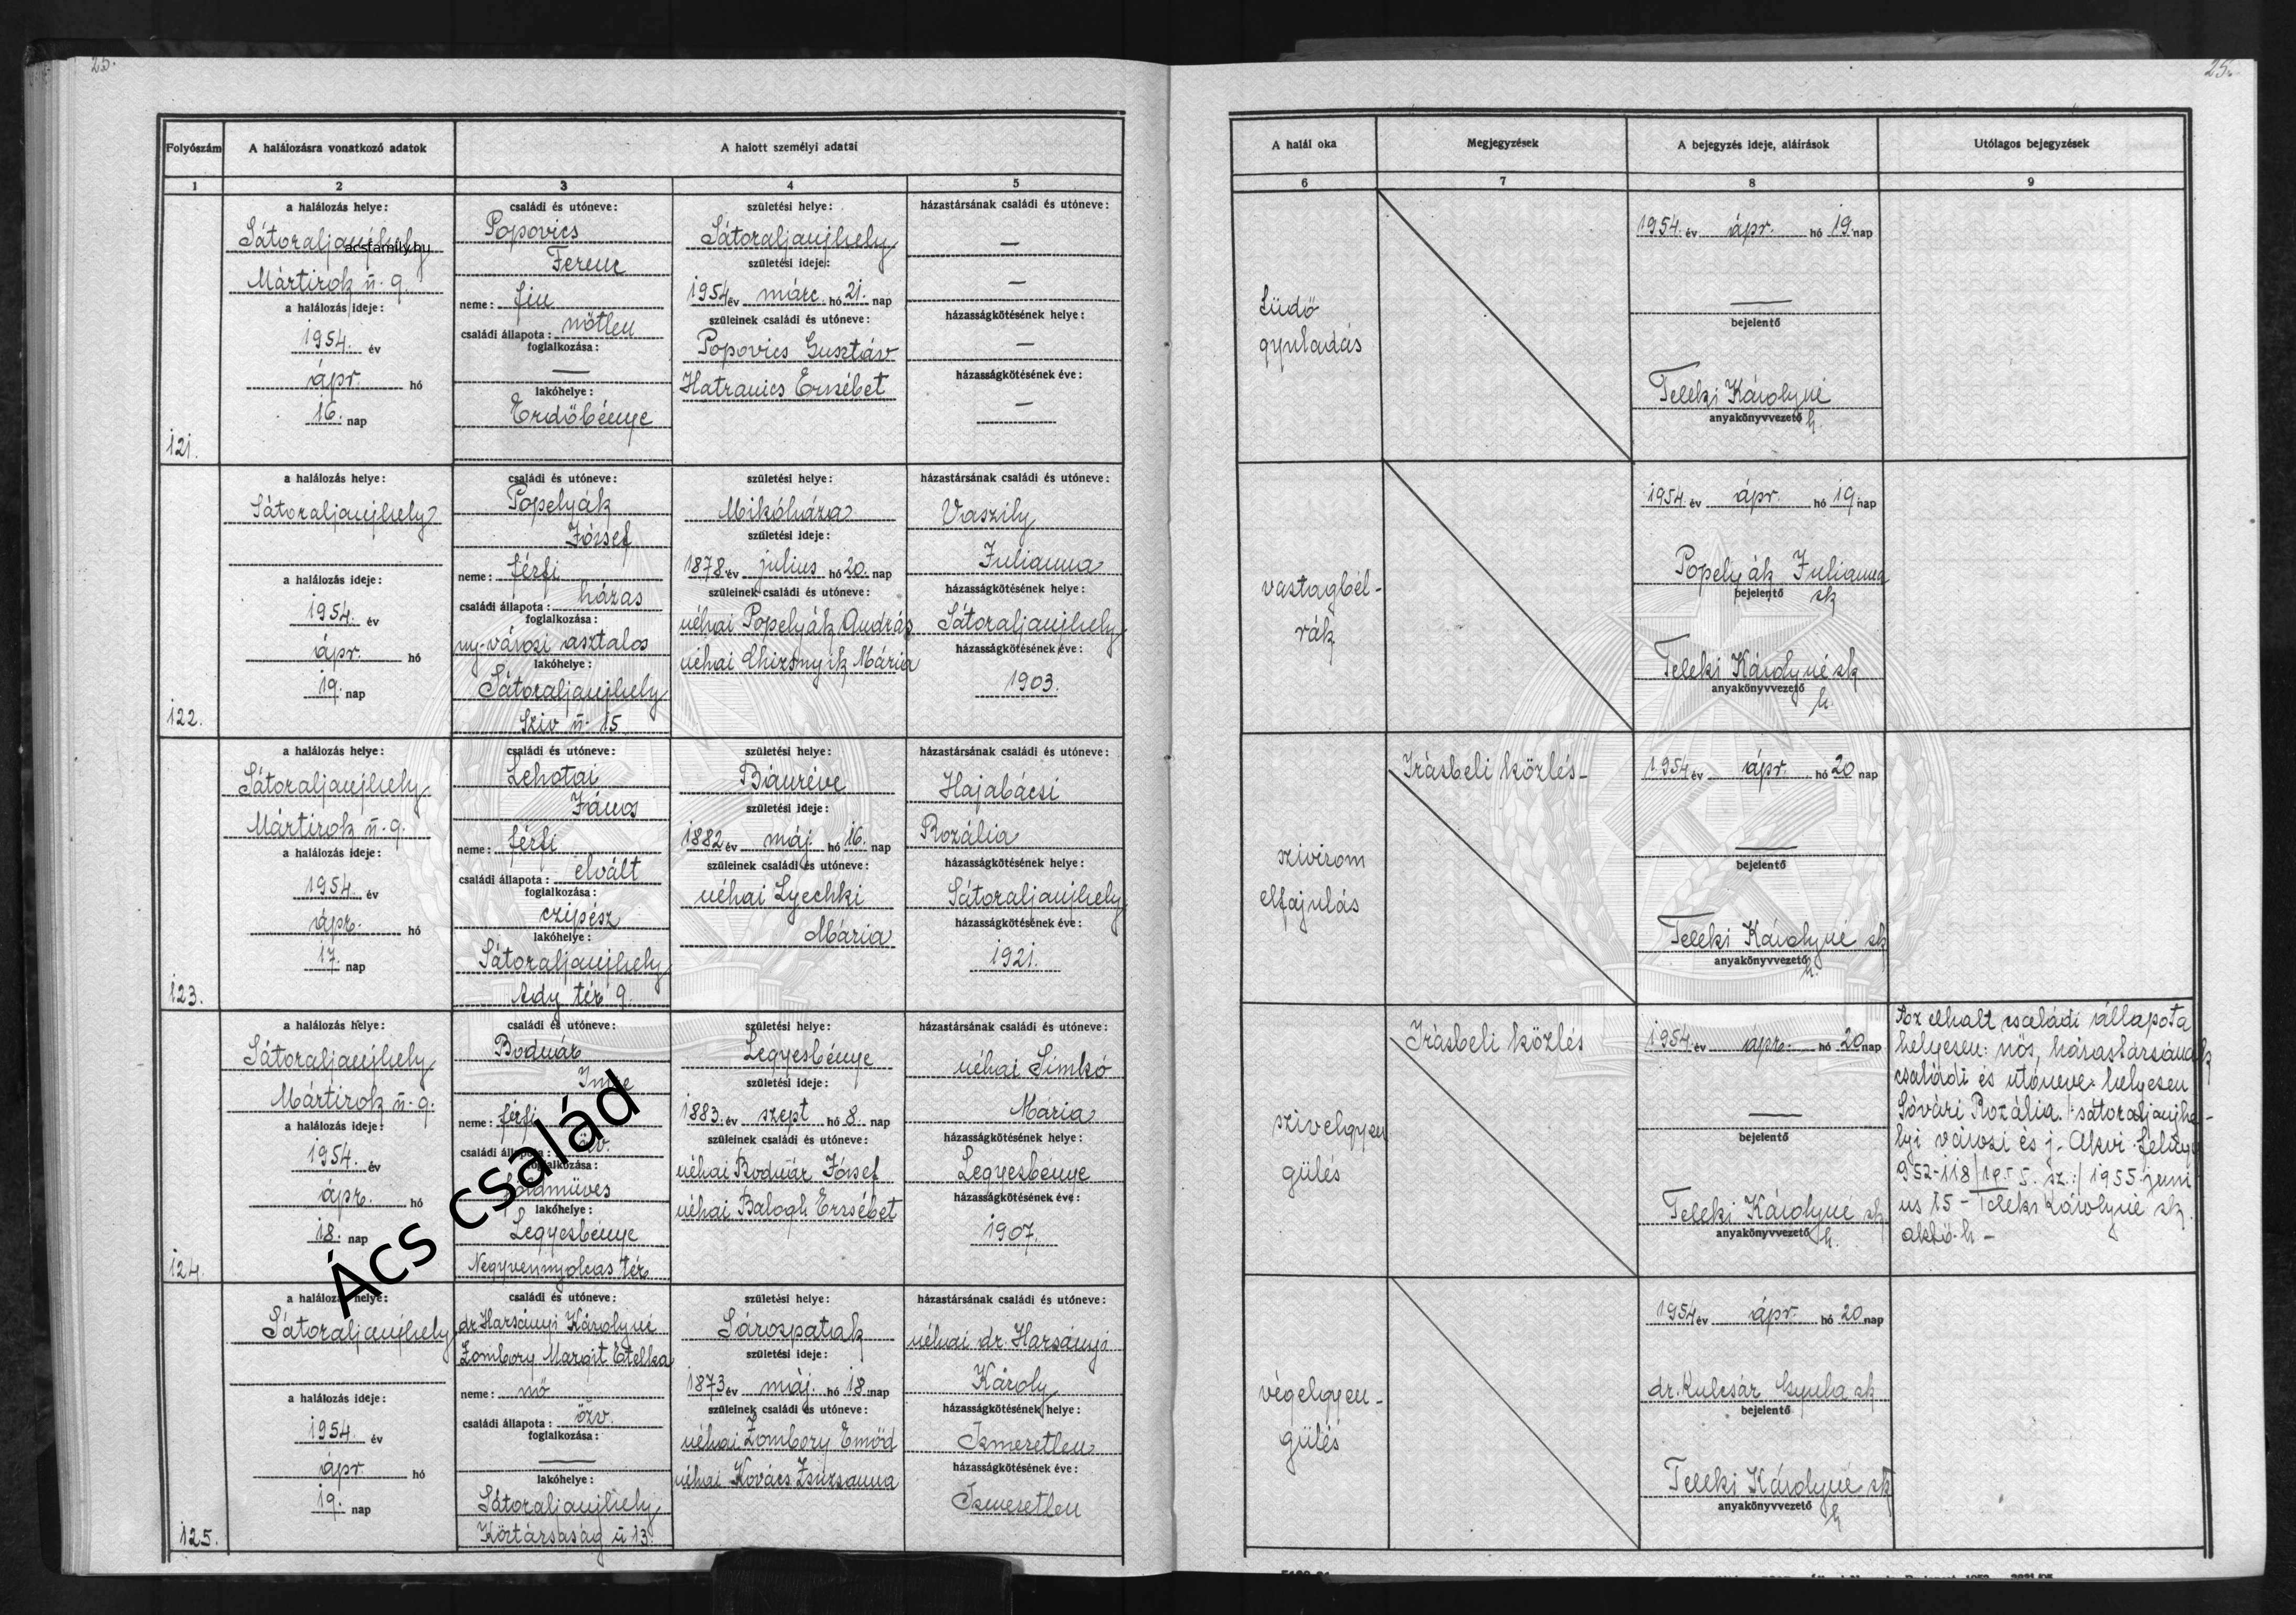 25.
25.
Folyószám
A halálozásra vonatkozó adatok
A halott személyi adatai
A halál oka
Megjegyzések
A bejegyzés ideje, aláírások
Utólagos bejegyzések
1
2
3
4
5
6
7
8
9
121.
a halálozás helye:
Sátoraljaujhely
acsfamily.hu
Mártirok u. 9.
a halálozás ideje:
1954. év
ápr. hó
16. nap
családi és utóneve:
Popovics
Ferenc
neme: fiu
családi állapota: nőtlen
foglalkozása:
—
lakóhelye:
Erdőbénye
születési helye:
Sátoraljaujhely
születési ideje:
1954 év márc. hó 21. nap
szüleinek családi és utóneve:
Popovics Gusztáv
Hatranics Erzsébet
házastársának családi és utóneve:
—
—
házasságkötésének helye:
—
házasságkötésének éve:
—
Tüdő
gyuladás
1954. év ápr. hó 19. nap
—
bejelentő
Teleki Károlyné
anyakönyvvezető h.
122.
a halálozás helye:
Sátoraljaujhely
a halálozás ideje:
1954. év
ápr. hó
19. nap
családi és utóneve:
Popelyák
József
neme: férfi
családi állapota: házas
foglalkozása:
ny. városi asztalos
lakóhelye:
Sátoraljaujhely
Sziv u. 15
születési helye:
Mikóháza
születési ideje:
1878 év julius hó 20. nap
szüleinek családi és utóneve:
néhai Popelyák András
néhai Chizsnyik Mária
házastársának családi és utóneve:
Vaszily
Julianna
házasságkötésének helye:
Sátoraljaujhely
házasságkötésének éve:
1903.
vastagbél-
rák
1954. év ápr. hó 19. nap
Popelyák Julianna
bejelentő sk
Teleki Károlyné sk
anyakönyvvezető
h.
123.
a halálozás helye:
Sátoraljaujhely
Mártirok u. 9.
a halálozás ideje:
1954. év
ápr. hó
17. nap
családi és utóneve:
Lehotai
János
neme: férfi
családi állapota: elvált
foglalkozása:
czipész
lakóhelye:
Sátoraljaujhely
Ady tér 9.
születési helye:
Bánréve
születési ideje:
1882 év máj. hó 16. nap
szüleinek családi és utóneve:
néhai Lyechki
Mária
házastársának családi és utóneve:
Hajabácsi
Rozália
házasságkötésének helye:
Sátoraljaujhely
házasságkötésének éve:
1921.
szivizom
elfajulás
Irásbeli közlés-
1954 év ápr. hó 20 nap
—
bejelentő
Teleki Károlyné sk
anyakönyvvezető
h.
124.
a halálozás helye:
Sátoraljaujhely
Mártirok u. 9.
a halálozás ideje:
1954. év
ápr. hó
18. nap
családi és utóneve:
Bodnár
Imre
neme: férfi
családi állapota: özv.
foglalkozása:
földmüves
lakóhelye:
Legyesbénye
Negyvennyolcas tér
Ács család
születési helye:
Legyesbénye
születési ideje:
1883. év szept hó 8. nap
szüleinek családi és utóneve:
néhai Bodnár József
néhai Balogh Erzsébet
házastársának családi és utóneve:
néhai Simkó
Mária
házasságkötésének helye:
Legyesbénye
házasságkötésének éve:
1907.
szivelgyen
gülés
Irásbeli közlés
1954. év ápr. hó 20 nap
—
bejelentő
Teleki Károlyné sk
anyakönyvvezető h.
Az elhalt családi állapota
helyesen: nős, házastársának
családi és utóneve helyesen
Sóvári Rozália. /: sátoraljaujhe-
lyi városi és j.
952-118/1955. sz:/ 1955 juni
us 15 - Teleki Károlyné sk.
h -
125.
a halálozás helye:
Sátoraljaujhely
a halálozás ideje:
1954. év
ápr hó
19. nap
családi és utóneve:
dr. Harsányi Károlyné
Zombory Margit Etelka
neme: nő
családi állapota: özv.
foglalkozása:
—
lakóhelye:
Sátoraljaujhely
Köztársaság u 13.
születési helye:
Sárospatak
születési ideje:
1873 év máj. hó 18. nap
szüleinek családi és utóneve:
néhai Zombory Emőd
néhai Kovács Zsuzsanna
házastársának családi és utóneve:
néhai dr. Harsányi
Károly
házasságkötésének helye:
Ismeretlen
házasságkötésének éve:
Ismeretlen
végelgyen-
gülés
1954 év ápr. hó 20 nap
dr. Kulcsár Gyula sk
bejelentő
Teleki Károlyné sk
anyakönyvvezető
h